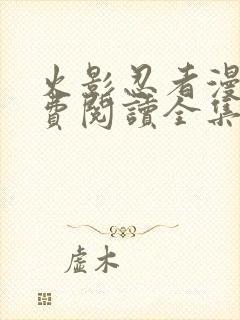 火影忍者漫
費閱讀全集
虛木